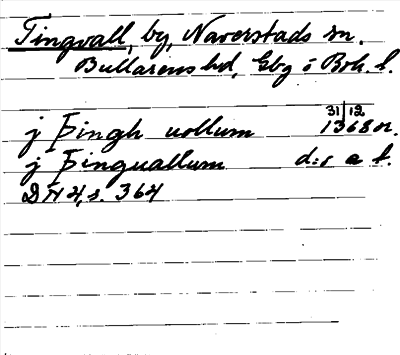 Tingvall, by, Naverstads sn.
Bullarens hd, Gbg o Boh. l.
31/12
j Þingh uollum 1368 n.
j Þinguallum d:s a l.
DN 4, s. 364